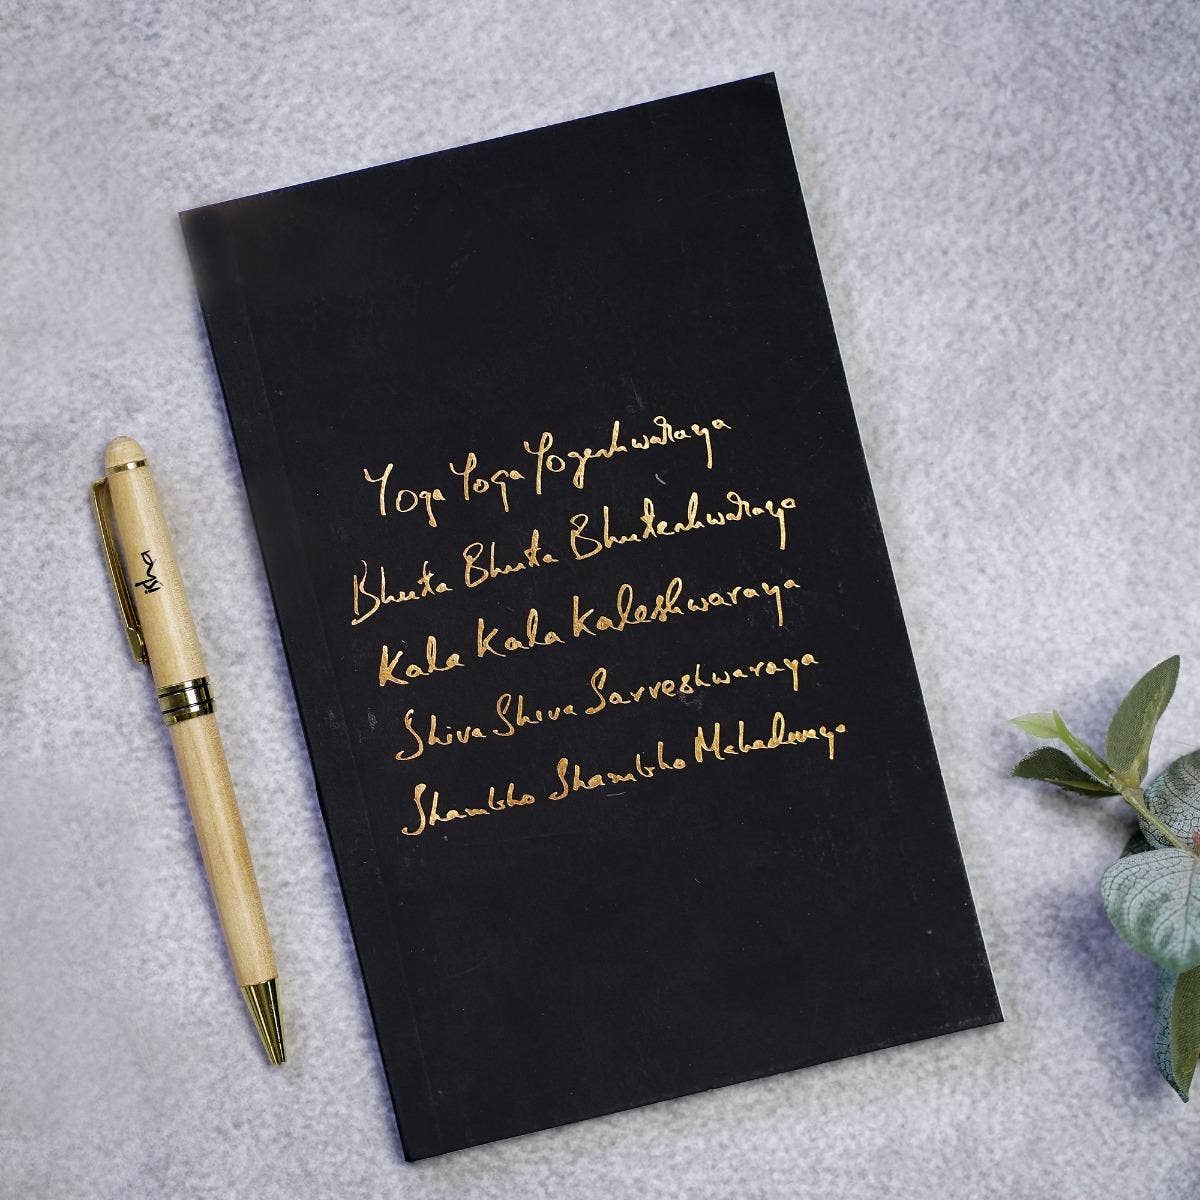 Yoga Yoga Yogeshwaraya
Bhuta Bhuta Bhuteshwaraya
Kala Kala Kaleshwaraya
Shiva Shiva Sarveshwaraya
Shambho Shambho Mahadevaya
isha